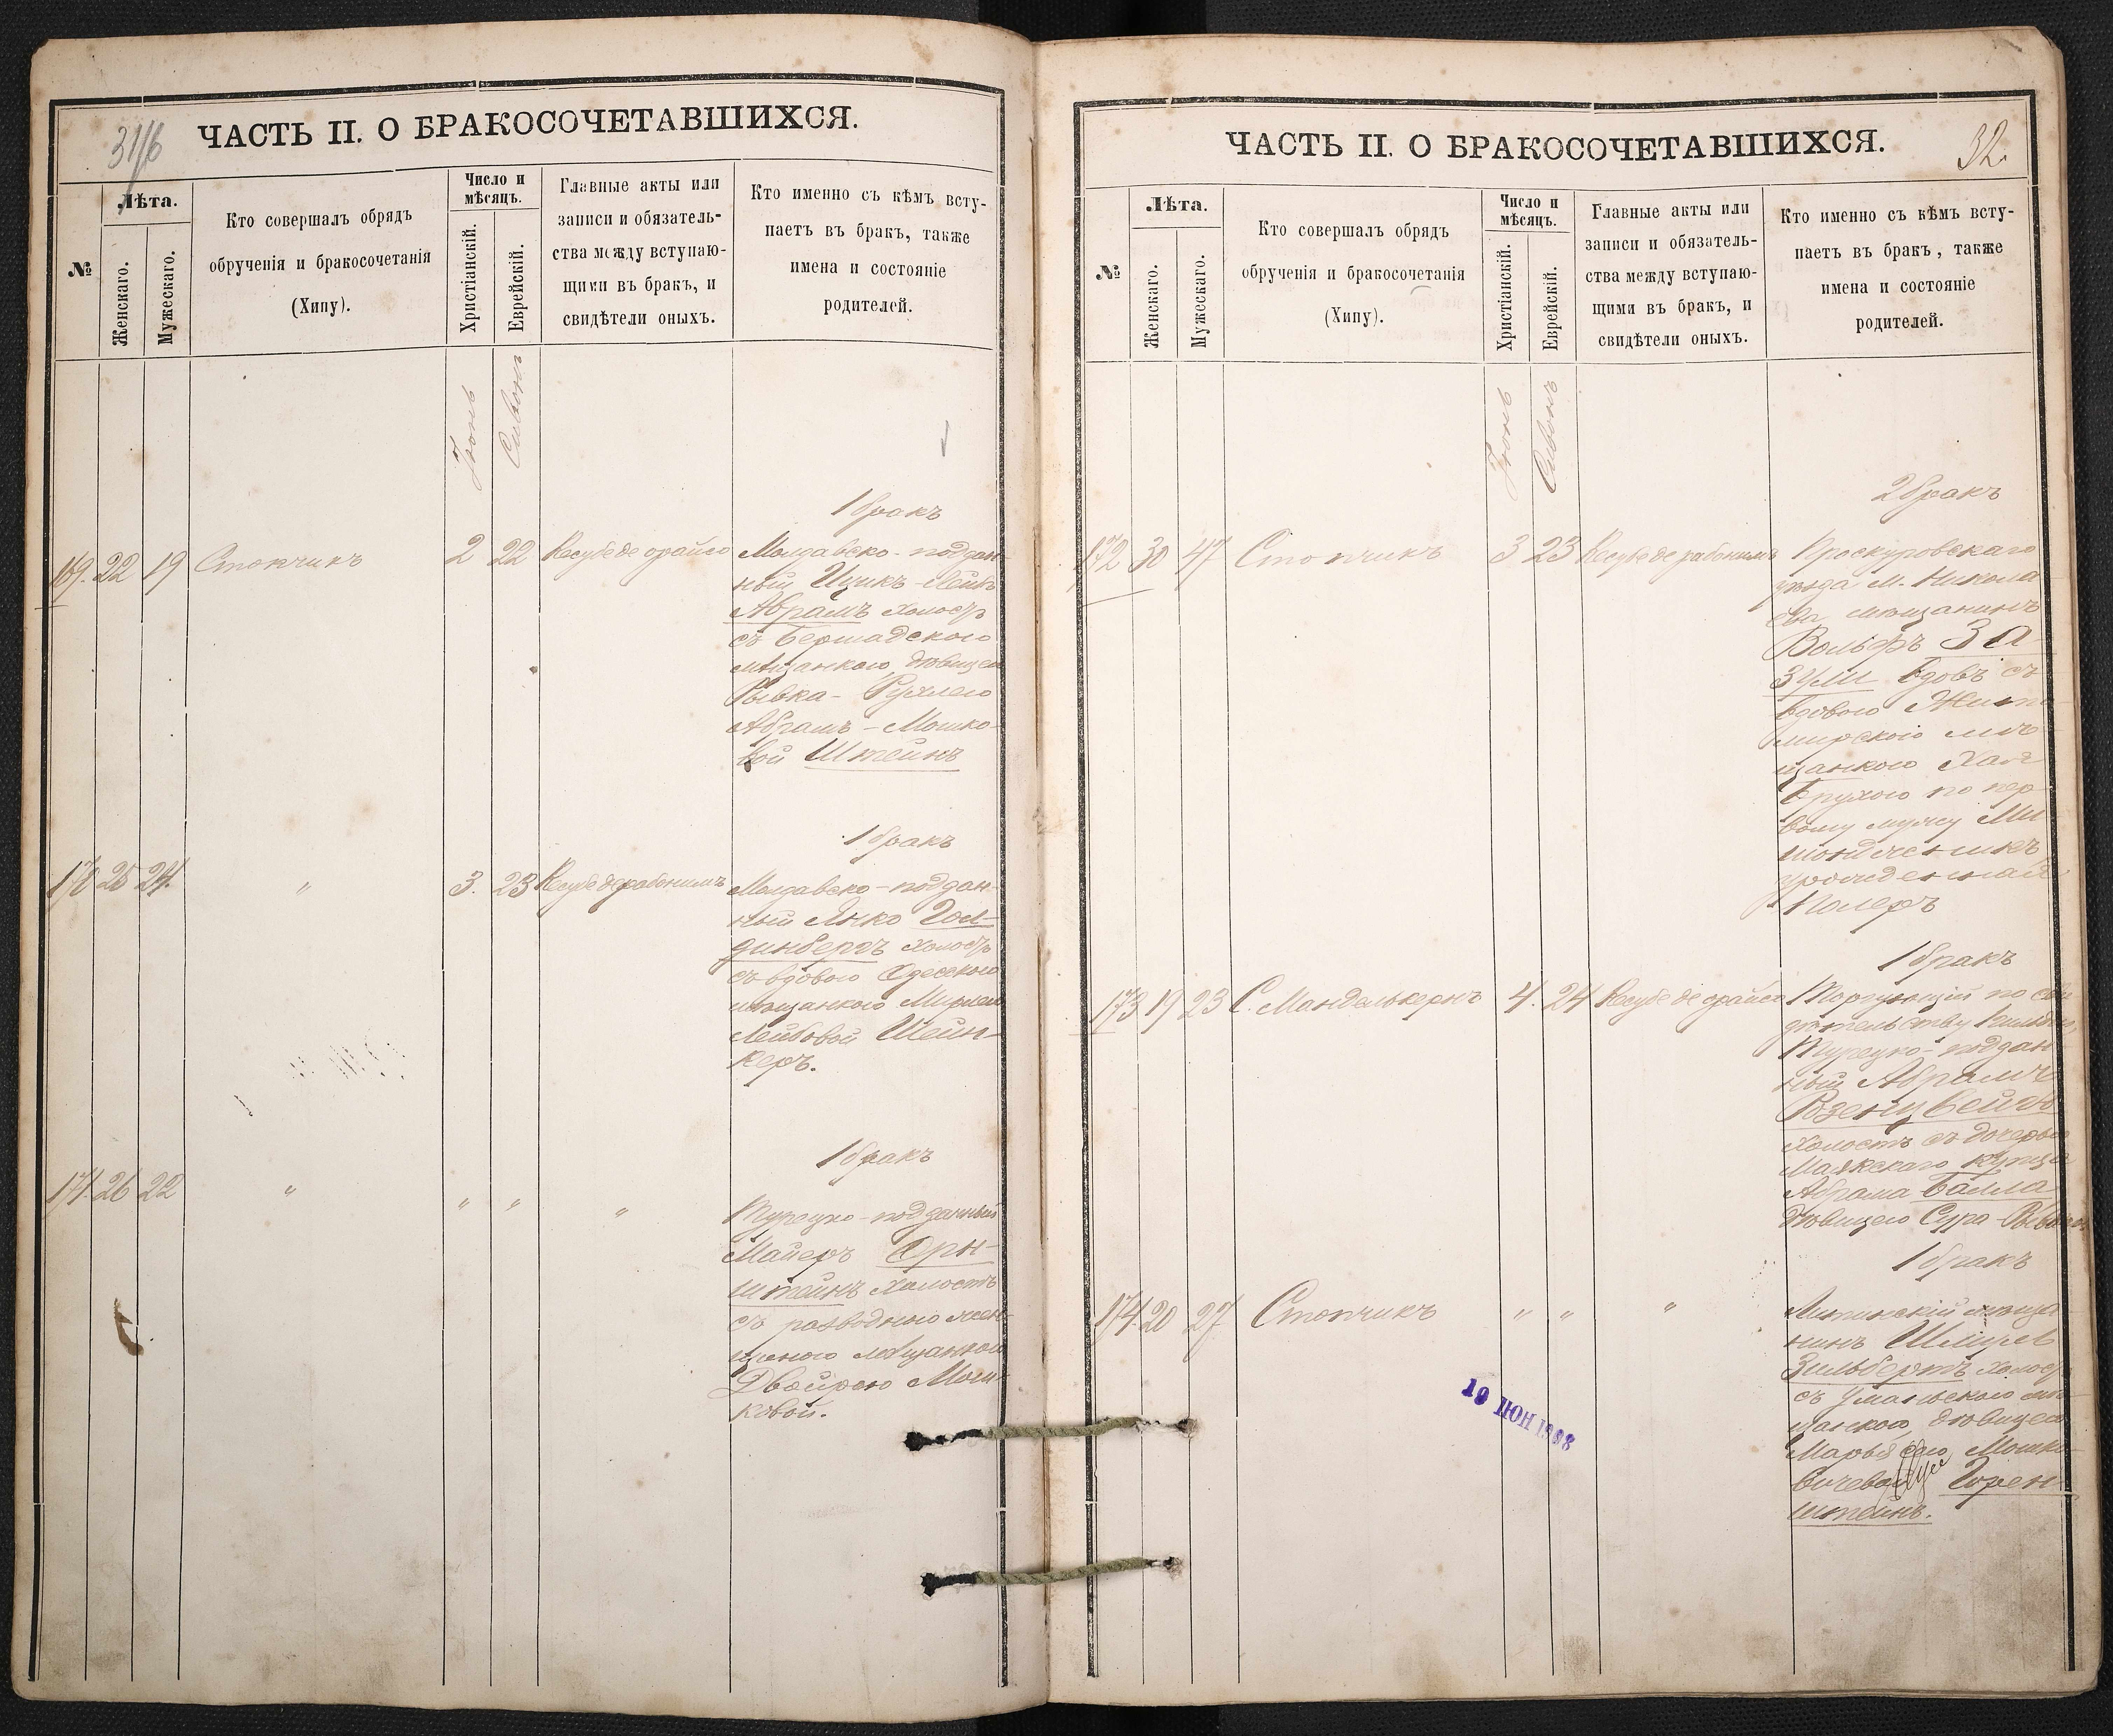 31/6
ЧАСТЬ II. О БРАКОСОЧЕТАВШИХСЯ.
№
Лѣта.
Женскаго.
Мужескаго.
Кто совершалъ обрядъ
обрученія и бракосочетанія
(Хипу).
Число и
мѣсяцъ.
Христіанскій.
Еврейскій.
Главные акты или
записи и обязатель-
ства между вступаю-
щими въ бракъ, и
свидѣтели оныхъ.
Кто именно съ кѣмъ всту-
паетъ въ бракъ, также
имена и состояніе
родителей.
Іюнь
Сивонъ
1 бракъ
169. 22 19 Стопчикъ 2 22 Кесубе де орайсо Молдавско-поддан-
ный Ицикъ-Лейбъ
Абрамъ холостъ
съ Бершадскою
мѣщанкою, дѣвицею
Рывка-Рухлею
Абрамъ-Мошко-
вой Штейнъ
1 бракъ
170 25 24. " 3. 23 Кесубе дерабонимъ Молдавско-поддан-
ный Янко Гол-
динбергъ холостъ
съ вдовою Одесскою
мѣщанкою Мириею
Лейбовой Шейн-
керъ.
1 бракъ
171. 26 22 " " " " Турецко-подданный
Майеръ Орн-
штейнъ холостъ
съ разводною жен-
щиною мѣщанкою
Двойрою Мош-
ковой.
ЧАСТЬ II. О БРАКОСОЧЕТАВШИХСЯ.
32.
№
Лѣта.
Женскаго.
Мужескаго.
Кто совершалъ обрядъ
обрученія и бракосочетанія
(Хипу).
Число и
мѣсяцъ.
Христіанскій.
Еврейскій.
Главные акты или
записи и обязатель-
ства между вступаю-
щими въ бракъ, и
свидѣтели оныхъ.
Кто именно съ кѣмъ всту-
паетъ въ бракъ, также
имена и состояніе
родителей.
Іюнь
Сивонъ
2 бракъ
172 30 47 Стопчикъ 3 23 Кесубе де рабонимъ Проскуровскаго
уѣзда М. Никола
ева мѣщанинъ
Вольфъ За-
зули вдовъ съ
вдовою Жито-
мирскою мѣ-
щанкою Хая
Брухою по пер-
вому мужу
урожденная
1 бракъ
173 19 23 С. Манделькернъ 4. 24 Кесубе де орайсо Торгующій по сви
дѣтельству
Турецко-поддан
ный Абрамъ
Розенцвейгъ
холостъ съ дочерью
Маякскаго купца
Абрама Балла
дѣвицею Сура-
1 бракъ
174. 20 27 Стопчикъ " " " Литинскій мѣща-
нинъ Шмуль
Зильбертъ холостъ
съ Уманскою мѣ-
щанкою, дѣвицею
Марьясею Мошко-
вичевой Горен-
штейнъ.
19 ІЮН 1898